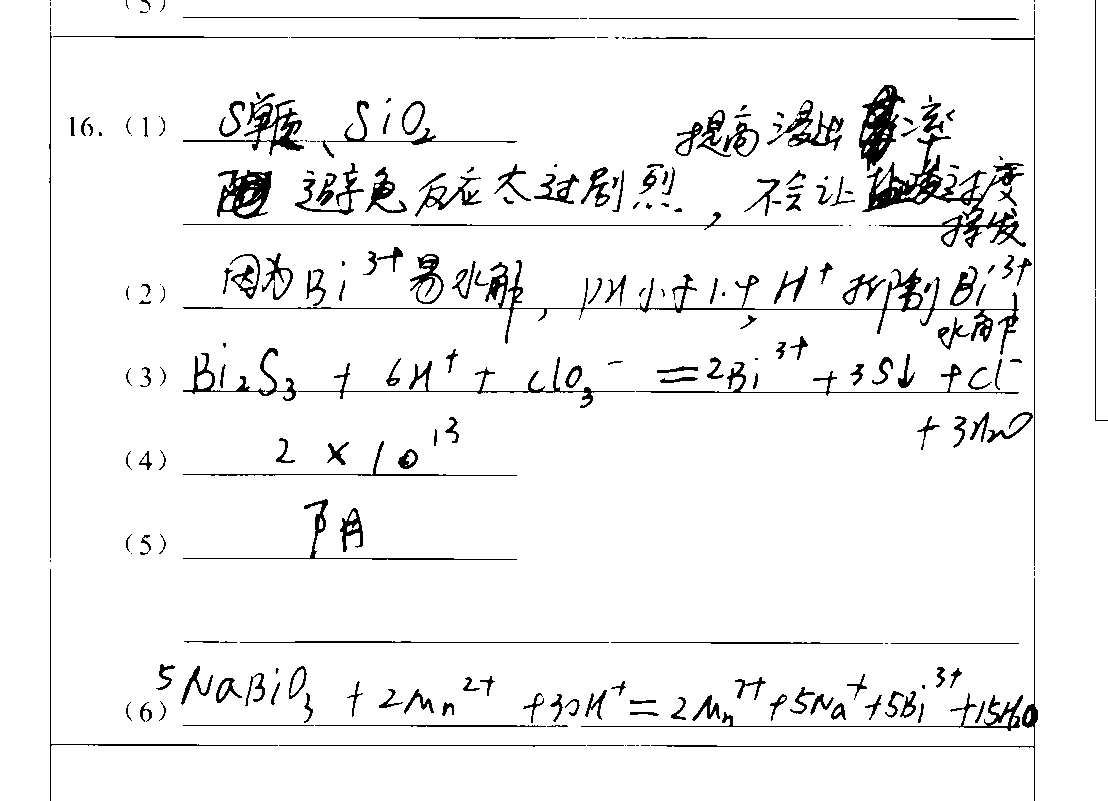 (5)
16.(1) S单质、SiO₂ 提高浸出率
避免反应太过剧烈,不会让 过度
挥发
(2) 因为Bi³⁺易水解,pH小于1.4,H⁺抑制Bi³⁺
水解
(3) Bi₂S₃ + 6H⁺ + ClO₃⁻ = 2Bi³⁺ + 3S↓ + Cl⁻
+ 3H₂O
(4) 2 × 10¹³
(5) 阴
(6) 5NaBiO₃ + 2Mn²⁺ + 30H⁺ = 2Mn⁷⁺ + 5Na⁺ + 5Bi³⁺ + 15H₂O